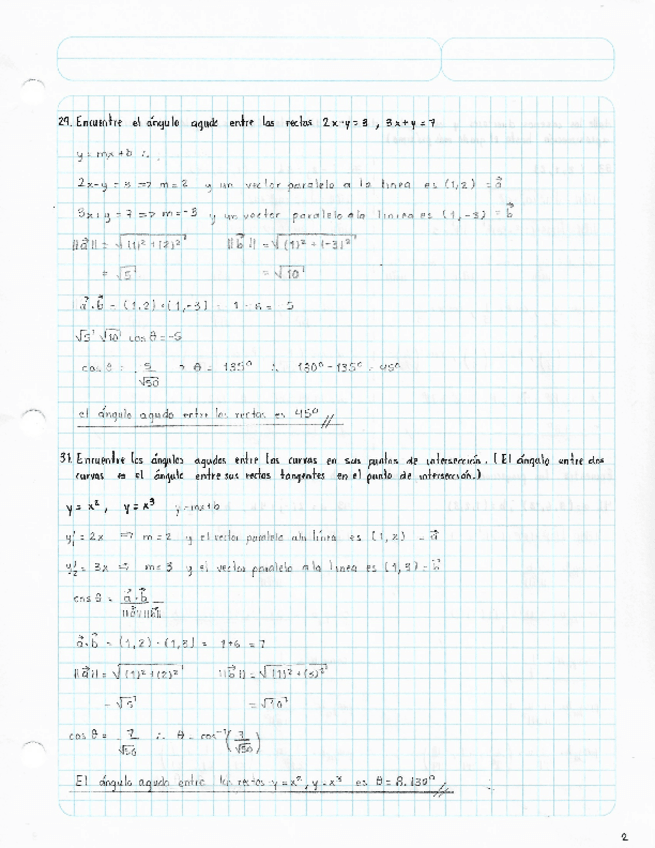 29. Encuentre el ángulo agudo entre las rectas 2x-y=3 , 3x+y=7
y=mx+b ∴
2x-y=3 => m=2 y un vector paralelo a la linea es (1,2) = a⃗
3x+y=7 => m=-3 y un vector paralelo a la linea es (1,-3) = b⃗
||a⃗|| = √(1)²+(2)² ||b⃗|| = √(1)²+(-3)²
= √5 = √10
a⃗·b⃗ = (1,2)·(1,-3) = 1-6 = 5
√5 √10 cos θ = -5
cos θ = 5/√50 → θ = 135° ∴ 180° - 135° = 45°
el ángulo agudo entre las rectas es 45°
31. Encuentre los ángulos agudos entre las curvas en sus puntos de intersección. (El ángulo entre dos
curvas es el ángulo entre sus rectas tangentes en el punto de intersección.)
y = x² , y = x³ y=mx+b
y₁' = 2x => m=2 y el vector paralelo a la linea es (1,2) = a⃗
y₂' = 3x => m=3 y el vector paralelo a la linea es (1,3) = b⃗
cos θ = a⃗·b⃗/||a⃗|| ||b⃗||
a⃗·b⃗ = (1,2)·(1,3) = 1+6 = 7
||a⃗|| = √(1)²+(2)² ||b⃗|| = √(1)²+(3)²
= √5 = √10
cos θ = 7/√50 ∴ θ = cos⁻¹(7/√50)
El ángulo agudo entre las rectas y=x², y=x³ es θ = 8.130°
2